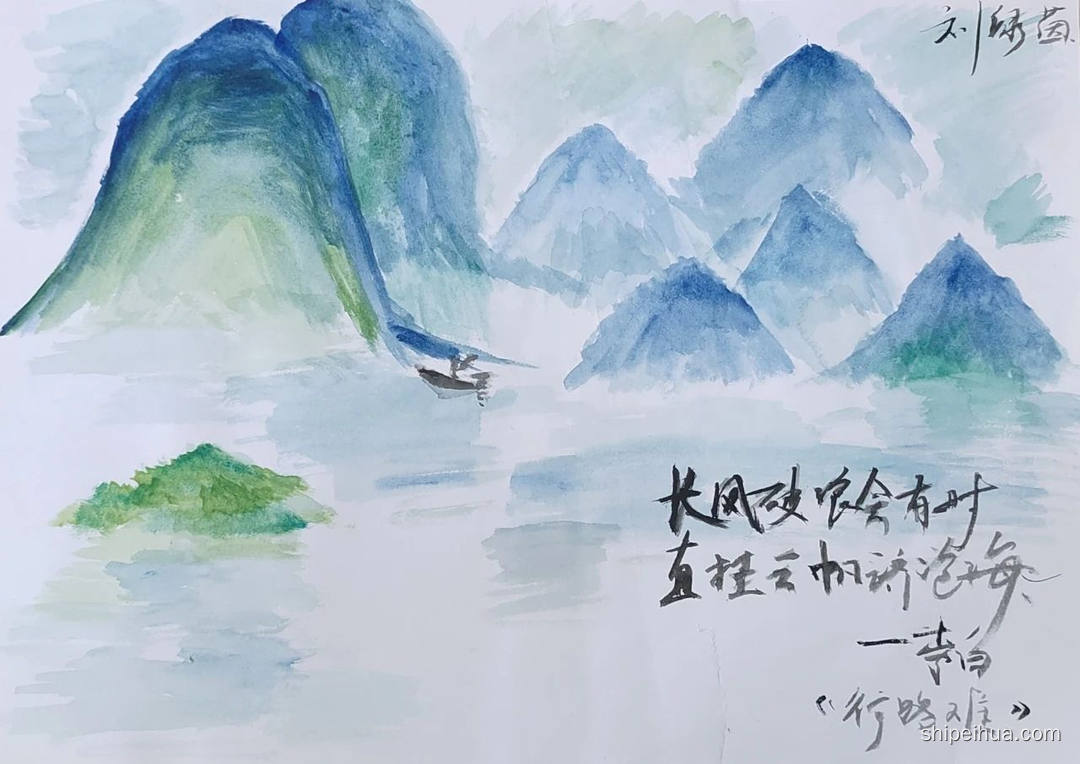 刘绿茵
长风破浪会有时
直挂云帆济沧海
一李白
《行路难》
shipeihua.com